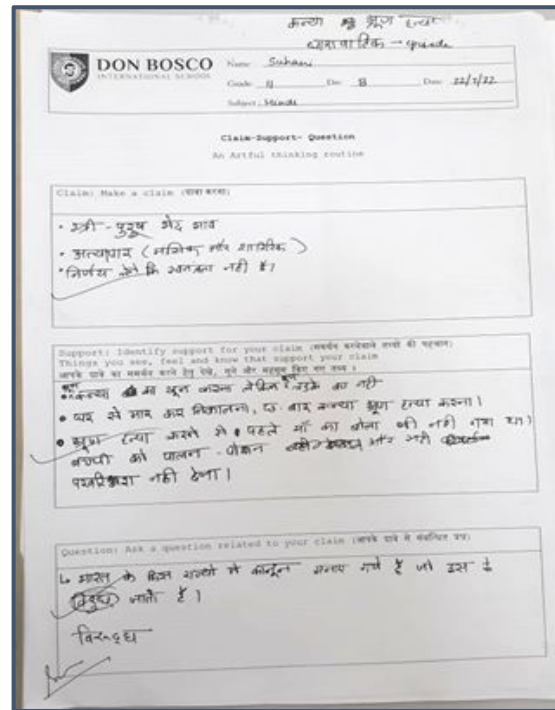 कन्या भ्रूण हत्या
धारावाहिक → episode
DON BOSCO
INTERNATIONAL SCHOOL
Name: Suhani
Grade: 11 Div: B Date: 22/7/22
Subject: Hindi
Claim-Support- Question
An Artful thinking routine
Claim: Make a claim (दावा करना)
• स्त्री - पुरुष भेद भाव
• अत्याचार (मानसिक और शारीरिक)
• निर्णय लेने कि स्वतंत्रता नही है।
Support: Identify support for your claim (समर्थन करनेवाले तथ्यों की पहचान)
Things you see, feel and know that support your claim
आपके दावे का समर्थन करने हेतु देखे, सुने और महसूस किए गए तथ्य ।
• कन्या का खून करना लेकिन लड़के का नही
• घर से मार कर निकालना, छ बार कन्या भ्रूण हत्या करना।
• भ्रूण हत्या करने से पहले माँ को बोला भी नही गया था।
बच्ची को पालन - पोशन और सही
परवरिश नही देना।
Question: Ask a question related to your claim (आपके दावे से संबन्धित प्रश्न)
↳ भारत के किस राज्यो मे कानून बनाए गये है जो इस के
विरुद्ध जाते है ।
विरूद्ध